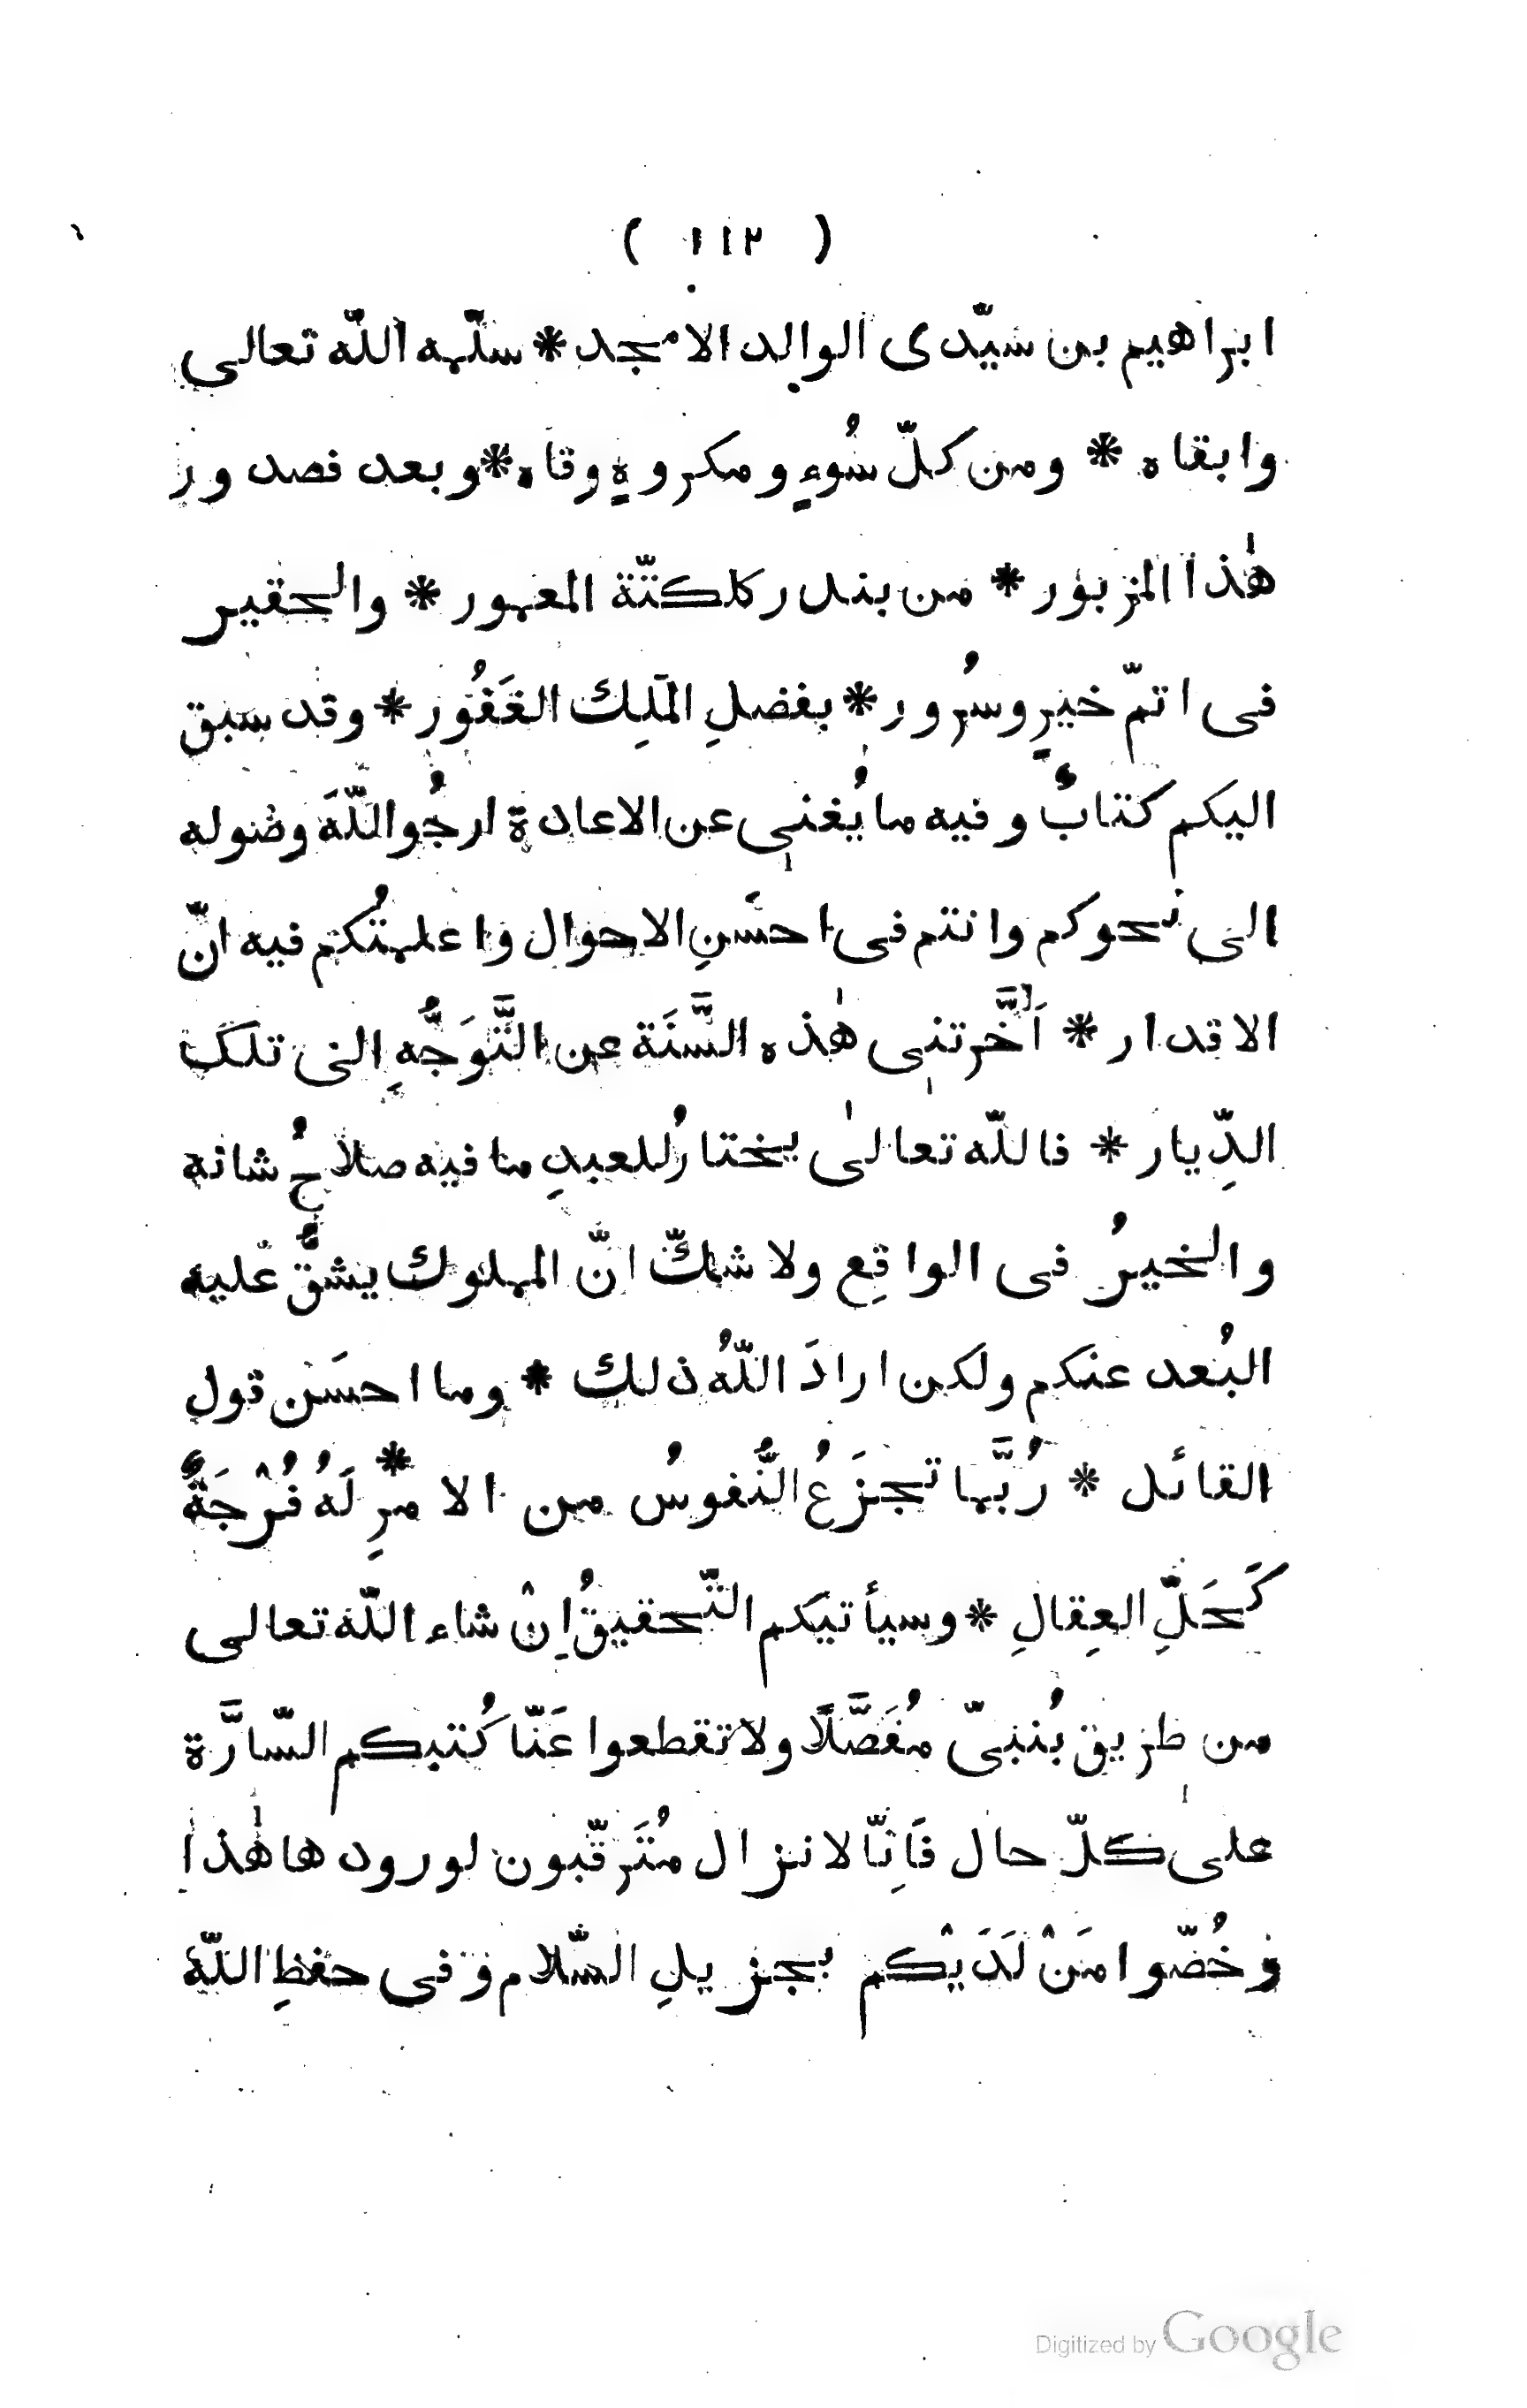 ( ١١٢ )
ابراهيم بن سيّدى الوالد الامجد * سلّمه اللّه تعالى
وابقاه * ومن كلّ سُوءٍ ومكروهٍ وقاه * وبعد فصدور
هٰذا المزبور * من بندر كلكتّة المعمور * والحقير
فى اتمّ خيرٍ وسُرور * بفضلِ المَلِك الغَفُور * وقد سبق
اليكم كتابٌ وفيه ما يُغنى عن الاعادة ارجُو اللّهَ وصوله
الى نحوكم وانتم فى احسَنِ الاحوال واعلمتُكم فيه انّ
الاقدار * اَخَّرتنى هٰذه السَّنَة عن التَّوَجُّهِ الى تلك
الدِّيار * فاللّه تعالىٰ يختارُ للعبدِ ما فيه صلاحُ شانه
والخيرُ فى الواقِع ولا شكّ انّ المملوك يشقُّ عليه
البُعد عنكم ولكن ارادَ اللّهُ ذلك * وما احسَن قول
القائل * رُبَّما تجزَعُ النُّفوسُ من الامرِ * لَهُ فُرْجَةٌ
كَحَلِّ العِقالِ * وسيأتيكم التّحقيقُ اِنْ شاء اللّه تعالى
من طريق بُنبىّ مُفَصَّلًا ولا تقطعوا عَنّا كُتبكم السّارَّة
على كلّ حال فَاِنّا لانزال مُتَرقّبون لورودها هٰذا
وخُصّوا مَنْ لَدَيْكم بجزيلِ السّلام وفى حفظِ اللّه
Digitized by Google